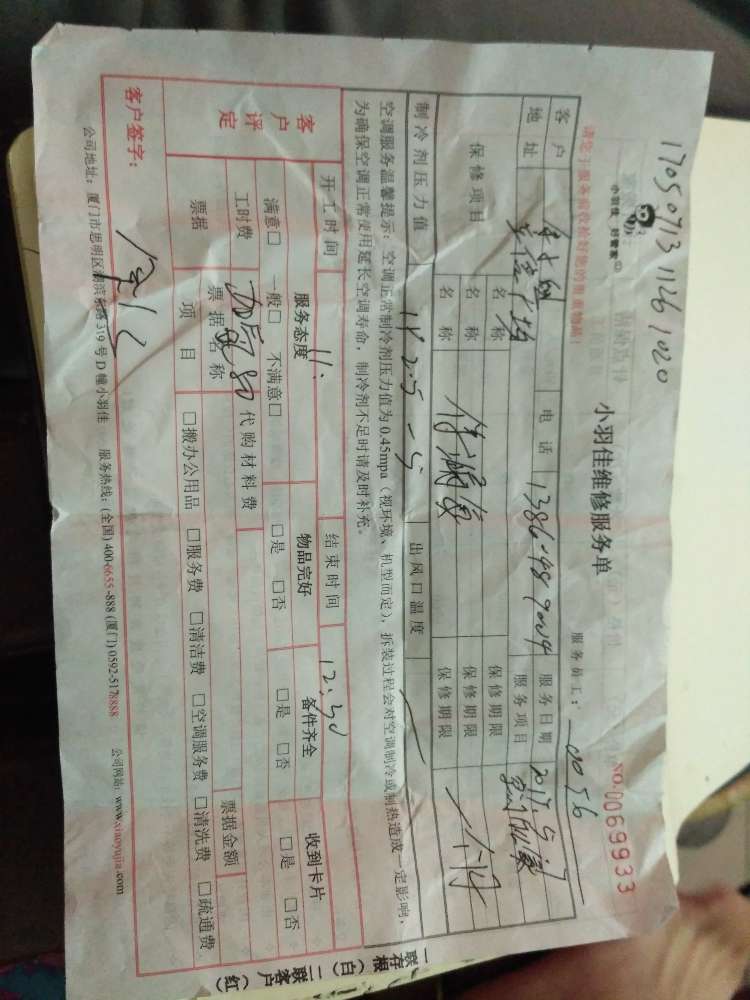 17050713 1126 1020
小羽佳 好管家
小羽佳维修服务单
服务员工: 0056
请您于服务前收拾好您的贵重物品!
NO:0069933
客户 电话 服务日期 2017.5.7
地址 服务项目
保修项目 名称 保修期限
名称 保修期限
名称 保修期限 一个月
制冷剂压力值 出风口温度
空调服务温馨提示: 空调正常制冷剂压力值为 0.45mpa (视环境、机型而定), 拆装过程会对空调制冷或制热造成一定影响,
为确保空调正常使用延长空调寿命, 制冷剂不足时请及时补充。
开工时间 11: 结束时间 12:30
客户评定 服务态度 物品完好 备件齐全 收到卡片
满意□ 一般□ 不满意□ □是 □否 □是 □否 □是 □否
工时费 80 代购材料费
票据 票据名称 票据金额
项目 □搬办公用品 □服务费 □清洁费 □空调服务费 □清洗费 □疏通费
客户签字:
公司地址: 厦门市思明区湖滨东路 319 号 D 幢小羽佳 服务热线: (全国) 400-6655-888 (厦门) 0592-5178888 公司网站: www.xiaoyujia.com
一联存根(白) 二联客户(红)